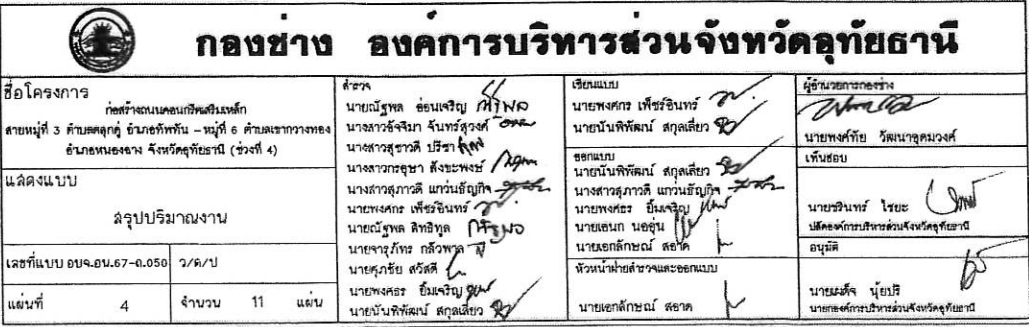 กองช่าง องค์การบริหารส่วนจังหวัดอุทัยธานี
ชื่อโครงการ
ก่อสร้างถนนคอนกรีตเสริมเหล็ก
สายหมู่ที่ 3 ตำบลตลุกดู่ อำเภอทัพทัน - หมู่ที่ 6 ตำบลเขากวางทอง
อำเภอหนองฉาง จังหวัดอุทัยธานี (ช่วงที่ 4)
แสดงแบบ
สรุปปริมาณงาน
เลขที่แบบ อบจ.อน.67-ถ.050 ว/ด/ป
แผ่นที่ 4 จำนวน 11 แผ่น
สำรวจ
นายณัฐพล อ่อนเจริญ
นางสาวอัจจิมา จันทร์สุวงศ์
นางสาวสุชาวดี ปรีชา
นางสาวกรอุษา สังขะพงษ์
นางสาวสุภาวดี แกว่นธัญกิจ
นายพงศกร เพ็ชร์อินทร์
นายณัฐพล สิทธิทูล
นายจารุภัทร กลัวพาล
นายศุภชัย สวัสดี
นายพงศธร ยิ้มเจริญ
นายนันพิพัฒน์ สกุลเสี่ยว
เขียนแบบ
นายพงศกร เพ็ชร์อินทร์
นายนันพิพัฒน์ สกุลเสี่ยว
ออกแบบ
นายนันพิพัฒน์ สกุลเสี่ยว
นางสาวสุภาวดี แกว่นธัญกิจ
นายพงศธร ยิ้มเจริญ
นายเอนก นออุ่น
นายเอกลักษณ์ สอาด
หัวหน้าฝ่ายสำรวจและออกแบบ
นายเอกลักษณ์ สอาด
ผู้อำนวยการกองช่าง
นายพงศ์ทัย วัฒนาอุดมวงศ์
เห็นชอบ
นายชรินทร์ ไชยะ
ปลัดองค์การบริหารส่วนจังหวัดอุทัยธานี
อนุมัติ
นายเผด็จ นุ้ยปรี
นายกองค์การบริหารส่วนจังหวัดอุทัยธานี